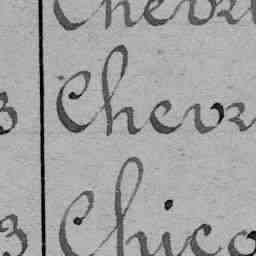 Chevr
3 Chevr
3 Chico